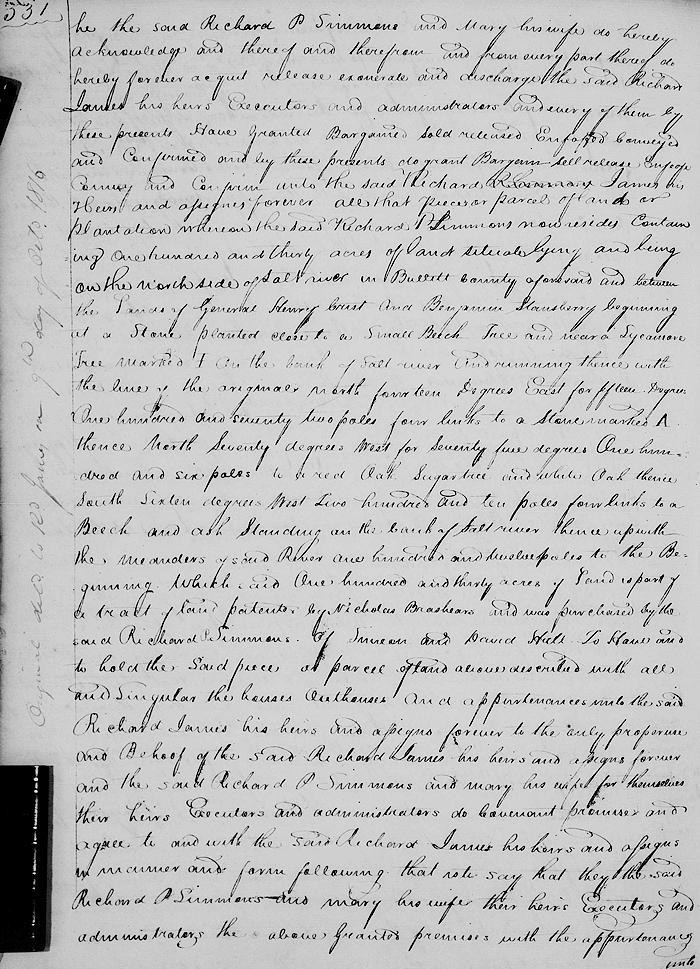 331
he the said Richard P Simmons and Mary his wife do hereby
acknowledge and thereof and therefrom and from every part thereof do
hereby forever acquit release exonerate and discharge the said Richard
James his heirs Executors and administrators and every of them by
these presents Have Granted Bargained sold released Enfoffed Conveyed
and Confirmed and by these presents do grant Bargain sell release Enfeoffe
Convey and Confirm unto the said Richard James his
Heirs and assignes forever all that piece or parcel of land or
Plantation whereon the said Richard P Simmons now resides Contain
ing One hundred and thirty acres of land situate lying and being
on the North side of Salt river in Bullett County aforesaid and between
the Lands of General Henry Crist and Benjamin Stansberry beginning
at a Stone planted close to a Small Beech Tree and near a Sycamore
Tree marked I on the bank of Salt river and running thence with
the line of the original North fourteen Degrees East for fifteen Degrees
One hundred and seventy two poles four links to a Stone marked A
thence North Seventy degrees West for Seventy five degrees One hun-
dred and six poles to a red Oak Sugartree and white Oak thence
South Sixten degrees West Two hundred and ten poles four links to a
Beech and ash Standing on the bank of Salt river thence up with
the meanders of said River one hundred and twelve poles to the Be-
ginning. Which said One hundred and thirty acres of Land is part of
a tract of land patented by Nicholas Brashears and was purchased by the
said Richard P. Simmons. Of Simeon and David Hall. To Have and
to hold the Said piece or parcel of land above described with all
and Singular the houses Outhouses and appurtenances unto the said
Richard James his heirs and assigns forever to the only proper use
and Behoof of the said Richard James his heirs and assigns forever
and the said Richard P Simmons and mary his wife for themselves
their heirs Executors and administrators do Covenant promise and
agree to and with the said Richard James his heirs and assigns
in manner and form following that is to say that they the said
Richard P Simmons and mary his wife their heirs Executors and
administrators the above Granted premises with the appurtenances
unto
Original deld to Rd James on 9th day of Oct. 1810